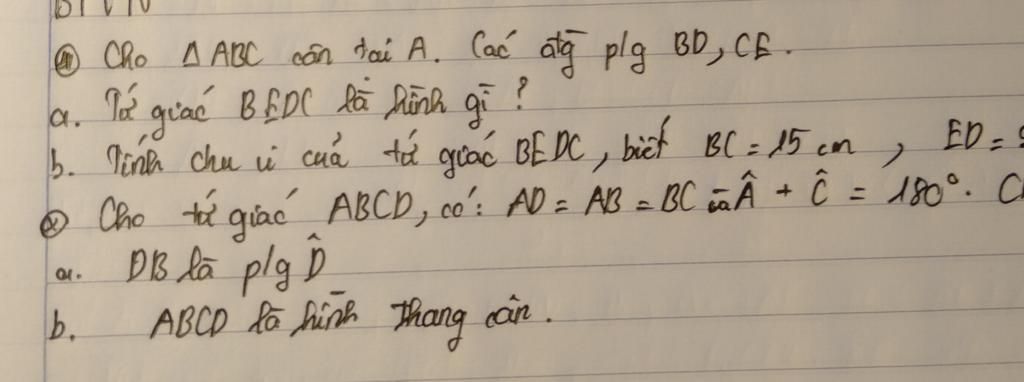 BTVN
① Cho Δ ABC cân tại A. Các đtg p/g BD, CE.
a. Tứ giác BEDC là hình gì?
b. Tính chu vi của tứ giác BEDC, biết BC = 15 cm, ED =
② Cho tứ giác ABCD, có: AD = AB = BC và Â + Ĉ = 180°. C
a. DB là p/g D̂
b. ABCD là hình thang cân.